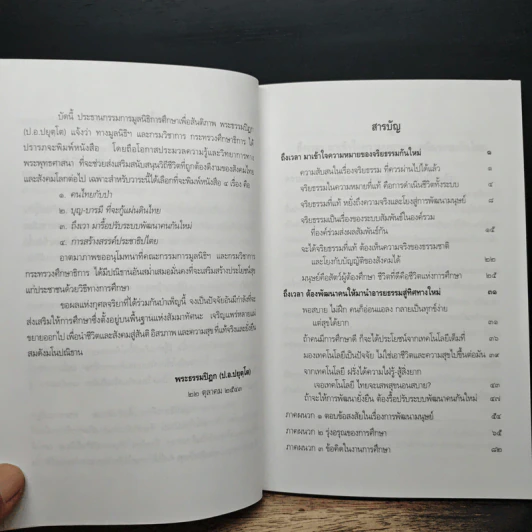 บัดนี้ ประธานกรรมการมูลนิธิการศึกษาเพื่อสันติภาพ พระธรรมปิฎก
(ป.อ.ปยุตโต) แจ้งว่า ทางมูลนิธิฯ และกรมวิชาการ กระทรวงศึกษาธิการ ได้
ปรารภจะพิมพ์หนังสือ โดยถือโอกาสประมวลความรู้และวิทยาการทาง
พระพุทธศาสนา ที่จะช่วยส่งเสริมสนับสนุนวิถีชีวิตที่ถูกต้องดีงามของสังคมไทย
และสังคมโลกต่อไป เฉพาะสำหรับวาระนี้ได้เลือกที่จะพิมพ์หนังสือ ๔ เรื่อง คือ
๑. คนไทยกับป่า
๒. บุญ-บารมี ที่จะกู้แผ่นดินไทย
๓. ถึงเวลา มารื้อปรับระบบพัฒนาคนกันใหม่
๔. การสร้างสรรค์ประชาธิปไตย
อาตมภาพขออนุโมทนาที่คณะกรรมการมูลนิธิฯ และกรมวิชาการ
กระทรวงศึกษาธิการ ได้มีปณิธานอันสม่ำเสมอมั่นคงที่จะเสริมสร้างประโยชน์สุข
แก่ประชาชนด้วยวิถีทางการศึกษา
ขอผลแห่งกุศลจริยาที่ได้ร่วมกันบำเพ็ญนี้ จงเป็นปัจจัยอันมีกำลังที่จะ
ส่งเสริมให้การศึกษาซึ่งตั้งอยู่บนพื้นฐานแห่งสัมมาทัศนะ เจริญแพร่หลาย
ขยายออกไป เพื่อนำชีวิตและสังคมสู่สันติ อิสรภาพ และความสุข ที่แท้จริงและยั่งยืน
สมดังมโนปณิธาน
พระธรรมปิฎก (ป.อ.ปยุตโต)
๒๒ ตุลาคม ๒๕๔๓
สารบัญ
ถึงเวลา มาเข้าใจความหมายของจริยธรรมกันใหม่ ๑
ความสับสนในเรื่องจริยธรรม ที่ควรผ่านไปได้แล้ว ๑
จริยธรรมในความหมายที่แท้ คือการดำเนินชีวิตทั้งระบบ ๔
จริยธรรมที่แท้ หยั่งถึงความจริงและโยงสู่การพัฒนามนุษย์ ๘
จริยธรรมเป็นเรื่องของระบบสัมพันธ์ในองค์รวม
ที่องค์ร่วมส่งผลสัมพันธ์กัน ๑๕
จะได้จริยธรรมที่แท้ ต้องเห็นความจริงของธรรมชาติ
และโยงกับบัญญัติของสังคมได้ ๒๒
มนุษย์คือสัตว์ผู้ต้องศึกษา ชีวิตที่ดีคือชีวิตแห่งการศึกษา ๒๕
ถึงเวลา ต้องพัฒนาคนให้มานำอารยธรรมสู่ทิศทางใหม่ ๓๑
พอสบาย ไม่ฝึก คนก็อ่อนแอลง กลายเป็นทุกข์ง่าย
แต่สุขได้ยาก ๓๑
ถ้าคนมีการศึกษาดี ก็จะได้ประโยชน์จากเทคโนโลยีเต็มที่
มองเทคโนโลยีเป็นปัจจัย ไม่ใช่เอาชีวิตและความสุขไปขึ้นต่อมัน ๓๙
จากเทคโนโลยี ฝรั่งได้ความใฝ่รู้-สู้สิ่งยาก
เจอเทคโนโลยี ไทยจะเสพสุขนอนสบาย? ๔๓
ถ้าจะให้การพัฒนายั่งยืน ต้องรื้อปรับระบบพัฒนาคนกันใหม่ ๔๗
ภาคผนวก ๑ ตอบข้อสงสัยในเรื่องการพัฒนามนุษย์ ๕๔
ภาคผนวก ๒ รุ่งอรุณของการศึกษา ๖๕
ภาคผนวก ๓ ข้อคิดในงานการศึกษา ๘๒